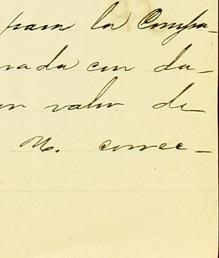 para la Compa-
rada con da-
on valor de
No. correc-